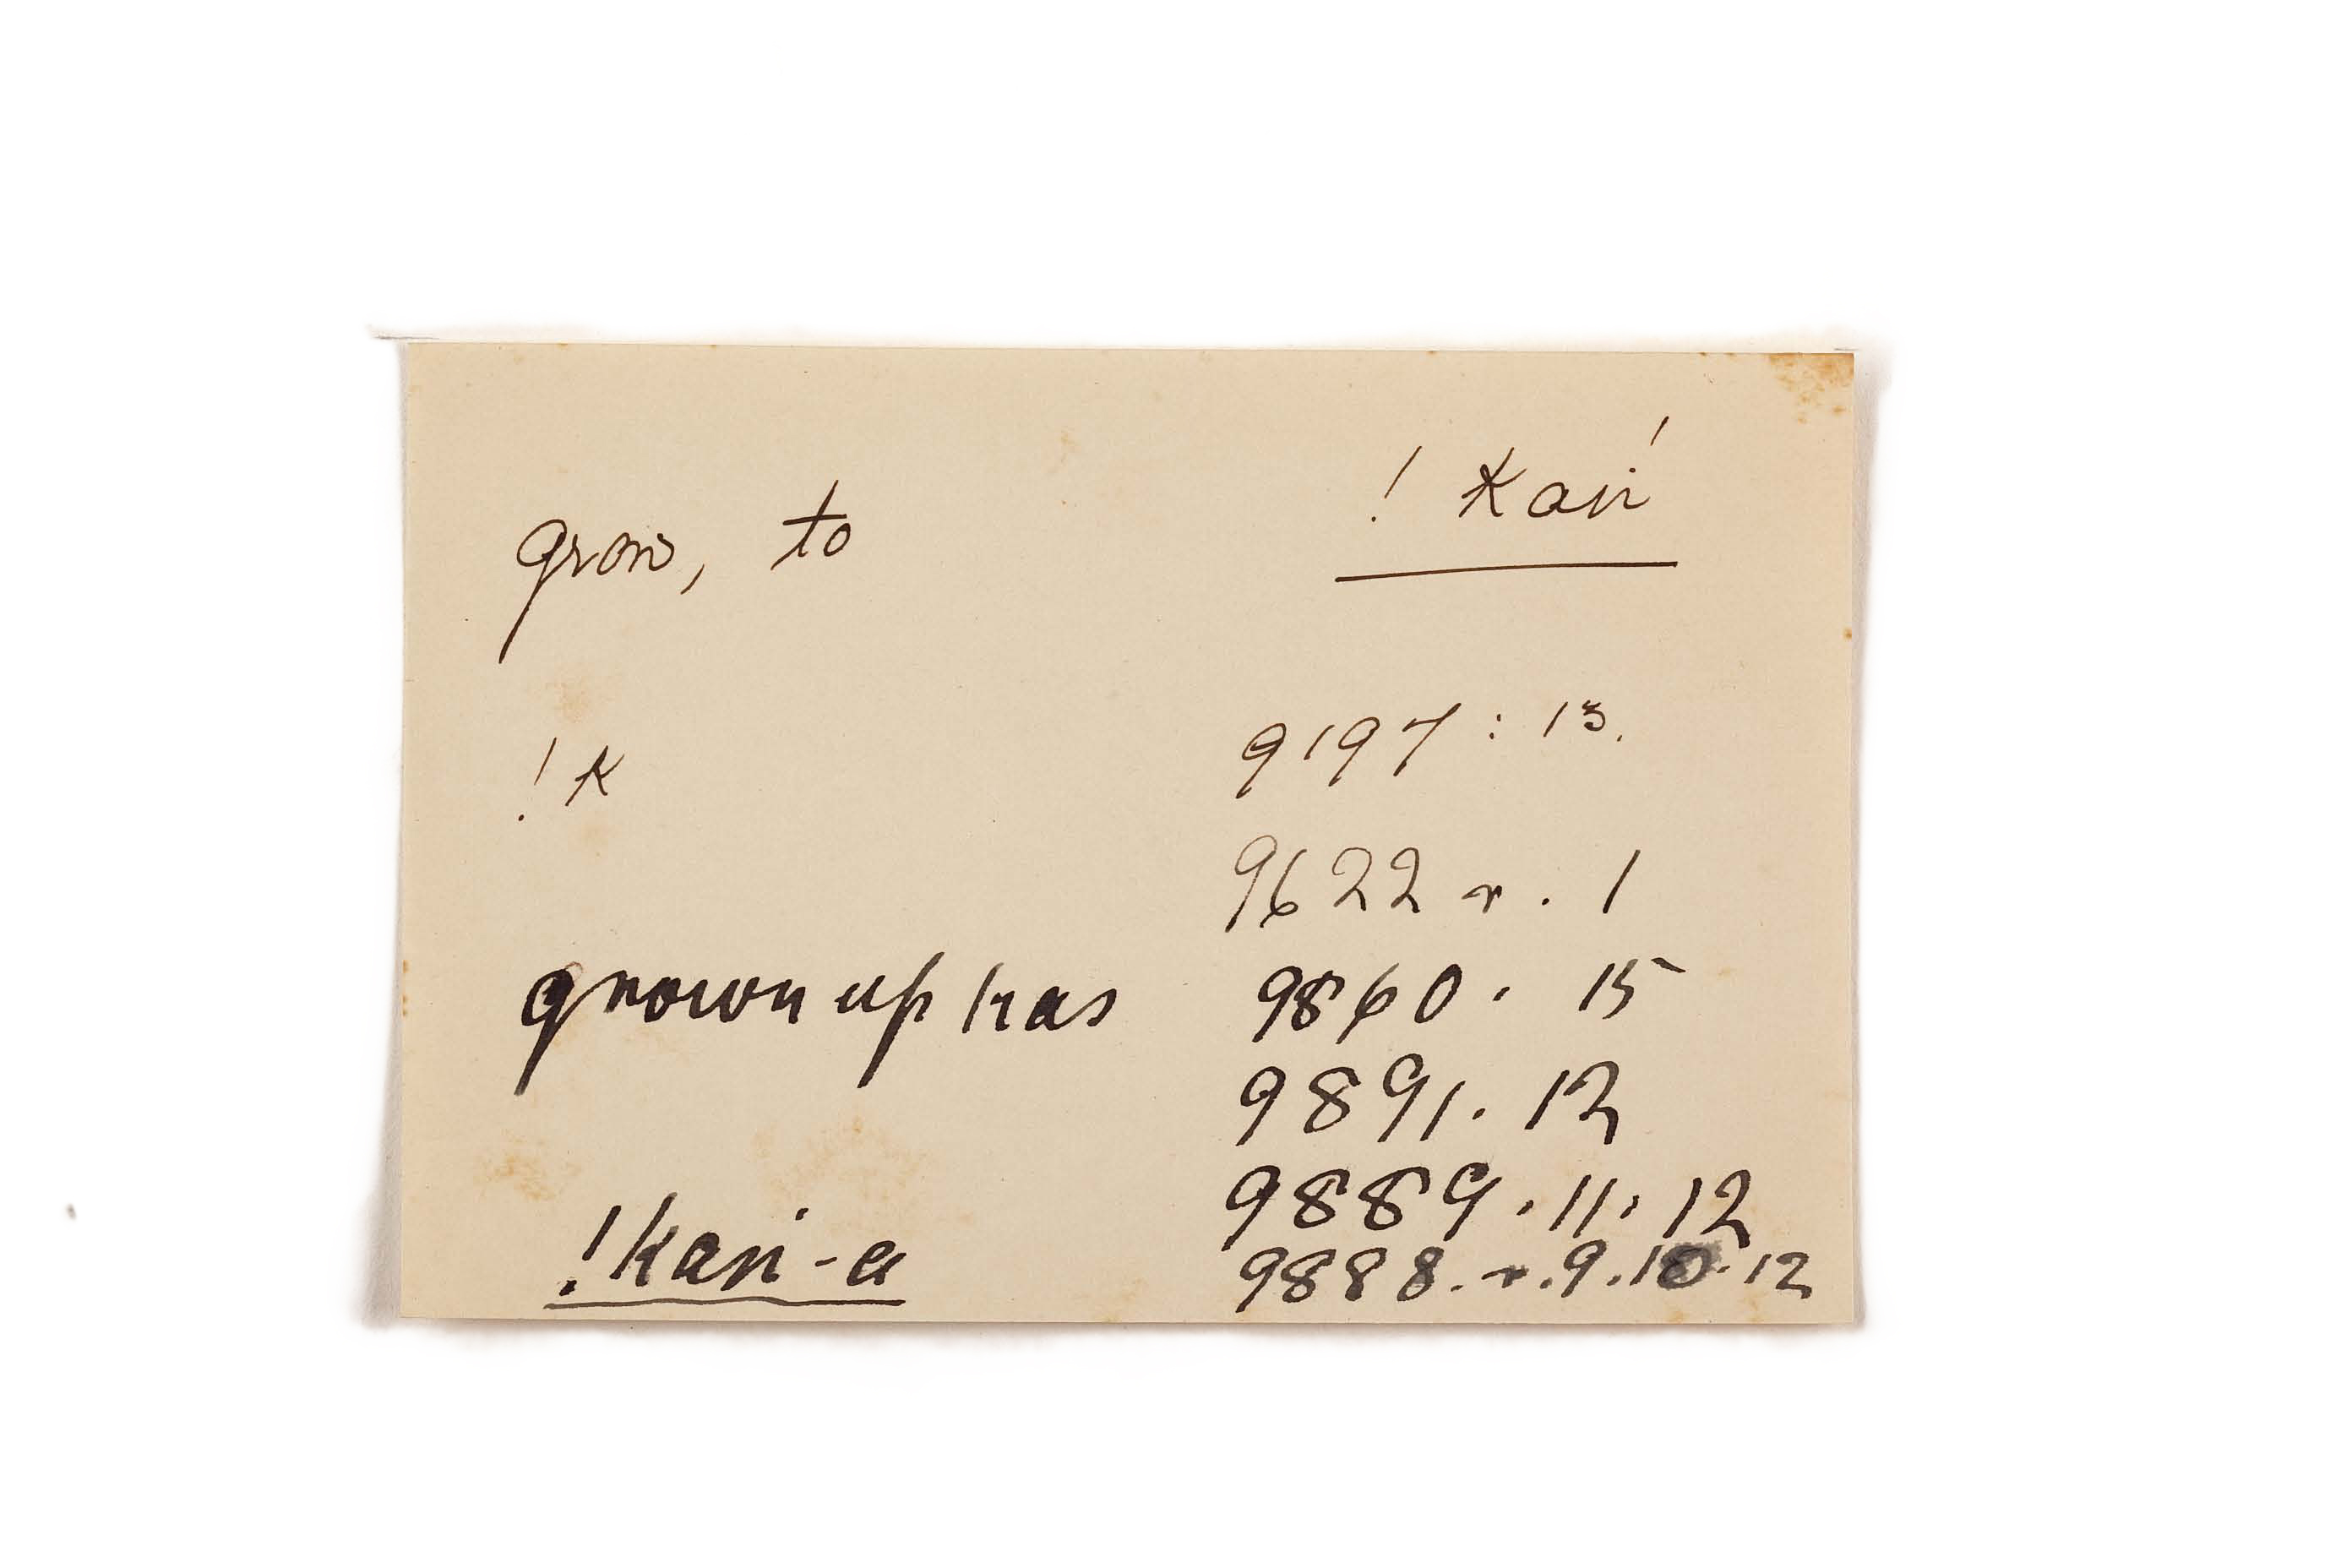 grow, to ! Kaṅ
!K 9197 : 13.
9622 r. 1
grown up has 9860. 15
9891. 12
9889. 11. 12
!kaṅ-a 9888. r. 9. 10. 12